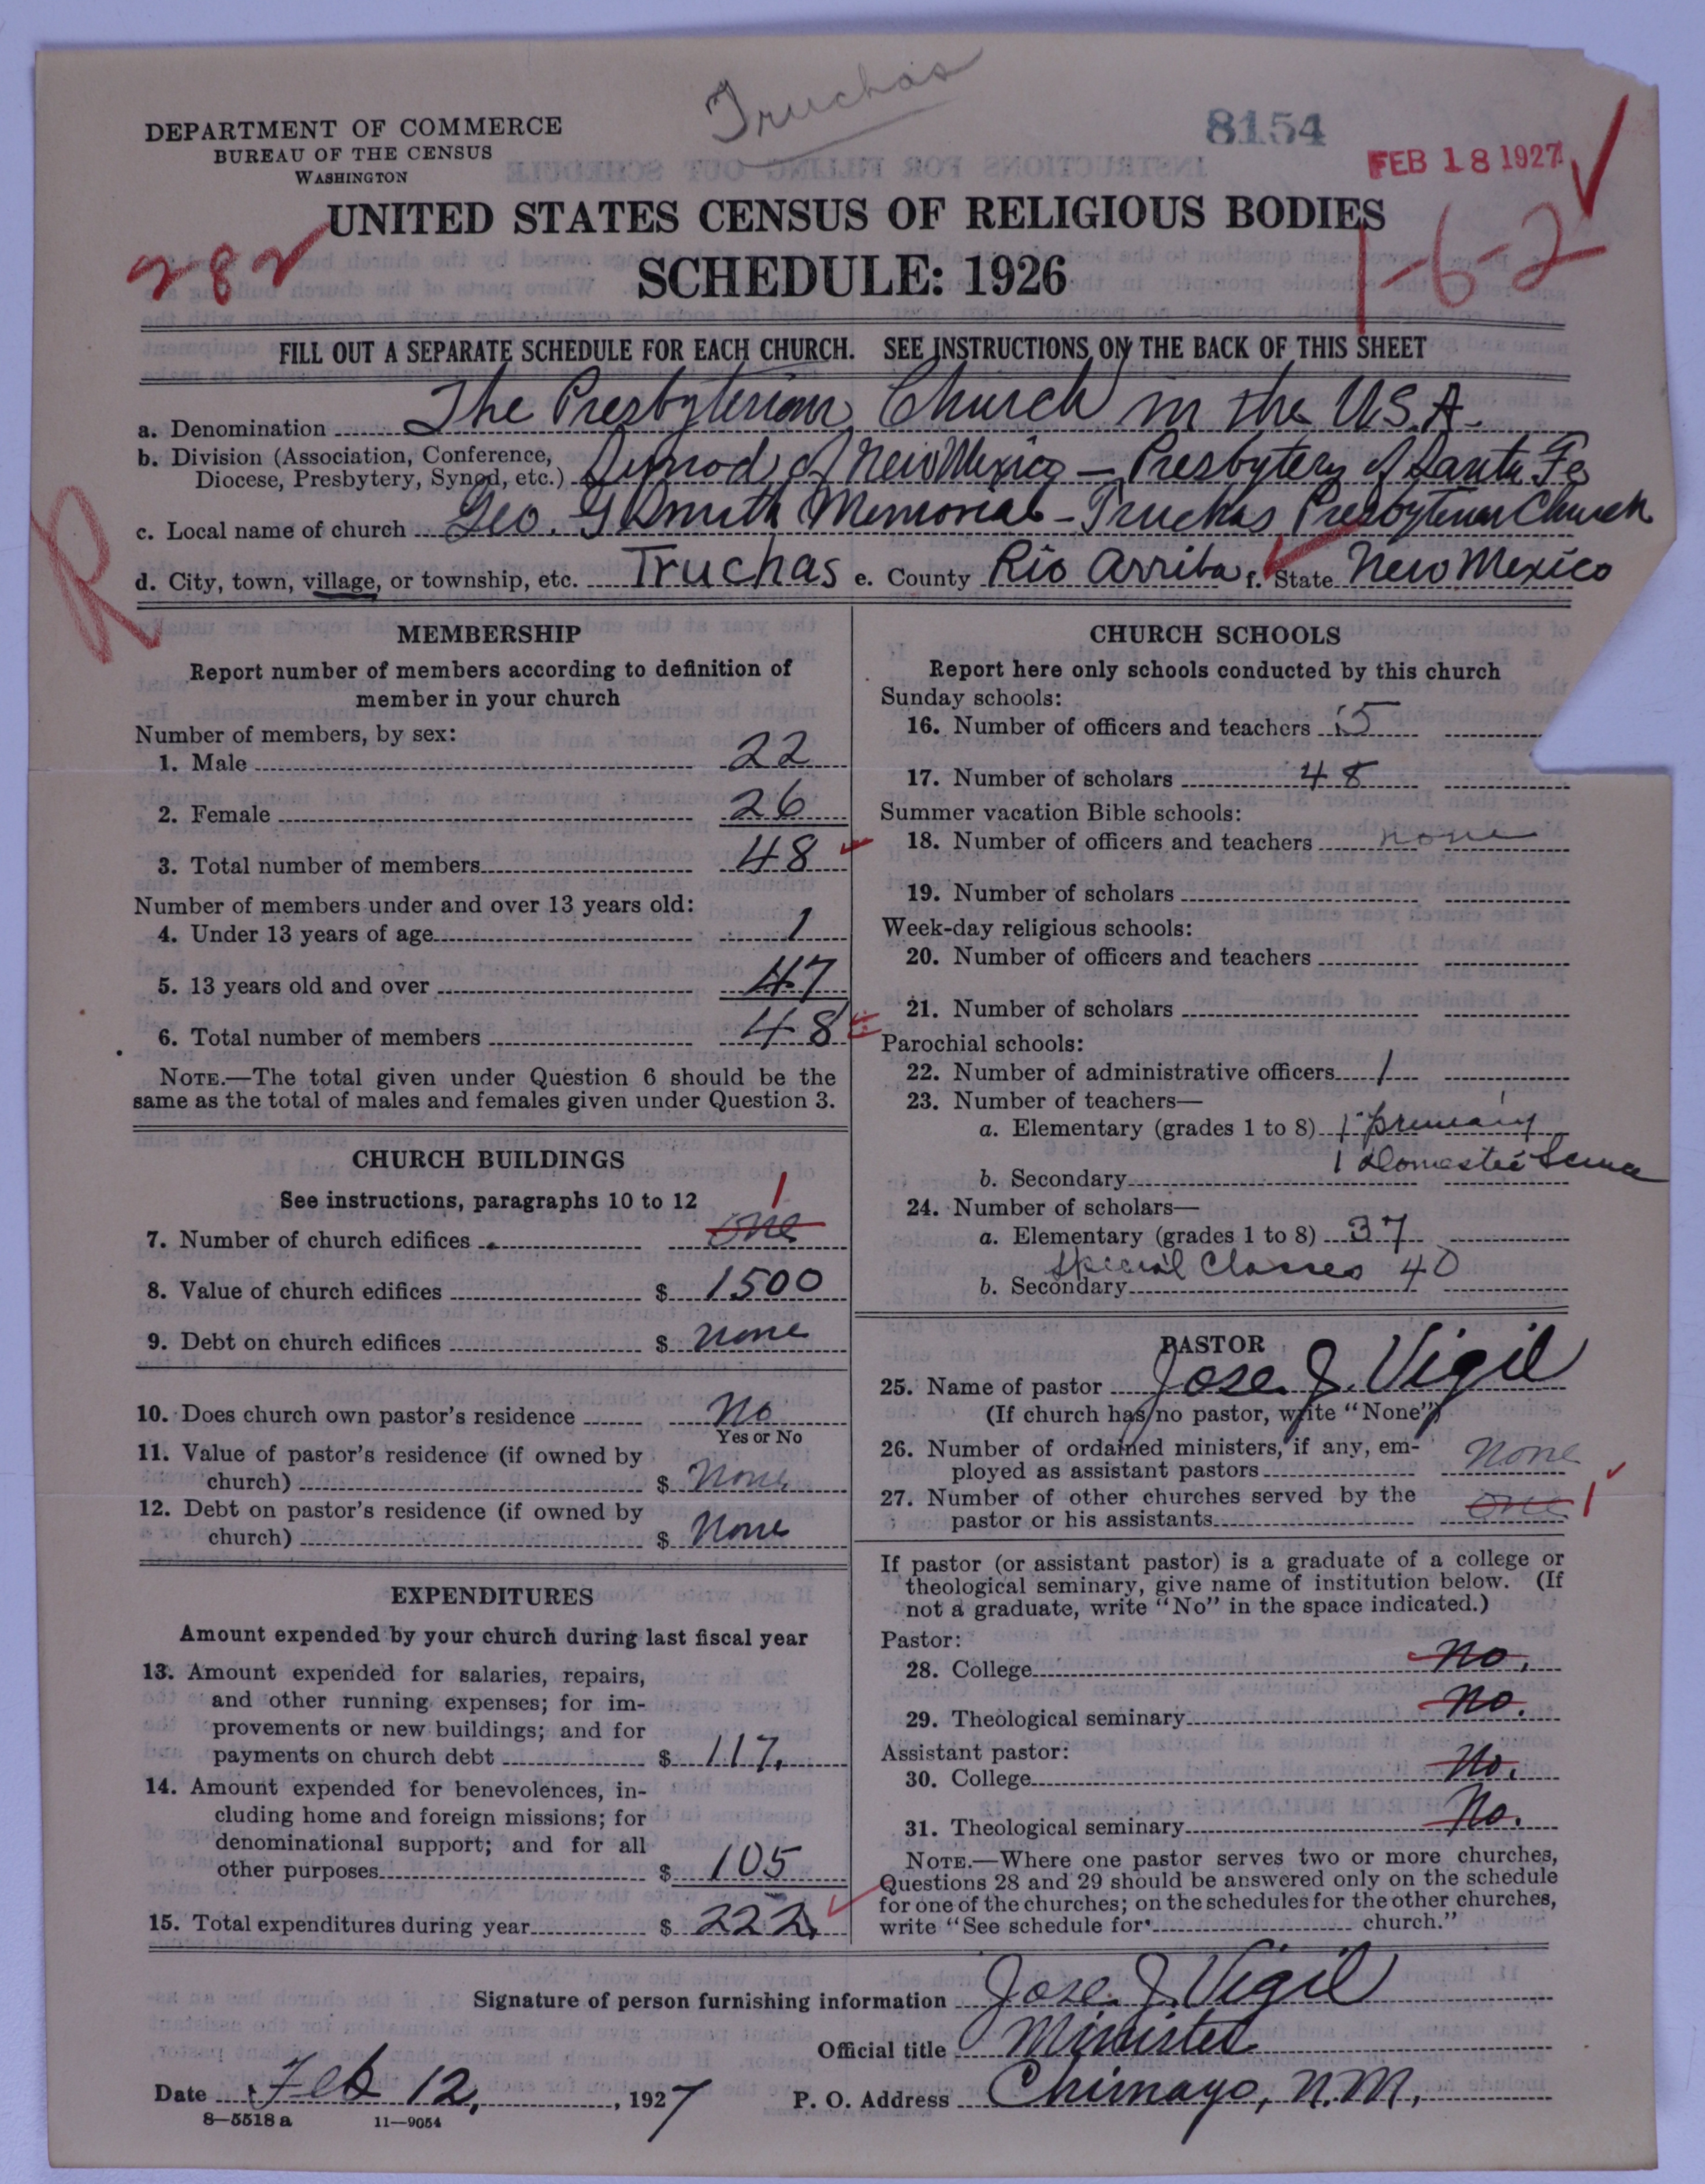 Truchas
DEPARTMENT OF COMMERCE
BUREAU OF THE CENSUS
WASHINGTON
8154
FEB 18 1927
UNITED STATES CENSUS OF RELIGIOUS BODIES
282
SCHEDULE: 1926
1-6-2
FILL OUT A SEPARATE SCHEDULE FOR EACH CHURCH. SEE INSTRUCTIONS ON THE BACK OF THIS SHEET
a. Denomination The Presbyterian Church in the U.S.A.
b. Division (Association, Conference, Diocese, Presbytery, Synod, etc.) Synod of New Mexico — Presbytery of Santa Fe
c. Local name of church Geo. G Smith Memorial - Truchas Presbyterian Church
d. City, town, village, or township, etc. Truchas e. County Rio Arriba f. State New Mexico
R
MEMBERSHIP
Report number of members according to definition of
member in your church
Number of members, by sex:
1. Male 22
2. Female 26
3. Total number of members 48
Number of members under and over 13 years old:
4. Under 13 years of age 1
5. 13 years old and over 47
6. Total number of members 48
NOTE.—The total given under Question 6 should be the
same as the total of males and females given under Question 3.
CHURCH BUILDINGS
See instructions, paragraphs 10 to 12
7. Number of church edifices one 1
8. Value of church edifices $ 1500
9. Debt on church edifices $ none
10. Does church own pastor's residence No
Yes or No
11. Value of pastor's residence (if owned by
church) $ None
12. Debt on pastor's residence (if owned by
church) $ None
EXPENDITURES
Amount expended by your church during last fiscal year
13. Amount expended for salaries, repairs,
and other running expenses; for im-
provements or new buildings; and for
payments on church debt $ 117.
14. Amount expended for benevolences, in-
cluding home and foreign missions; for
denominational support; and for all
other purposes $ 105
15. Total expenditures during year $ 222.
CHURCH SCHOOLS
Report here only schools conducted by this church
Sunday schools:
16. Number of officers and teachers 5
17. Number of scholars 48
Summer vacation Bible schools:
18. Number of officers and teachers none
19. Number of scholars
Week-day religious schools:
20. Number of officers and teachers
21. Number of scholars
Parochial schools:
22. Number of administrative officers 1
23. Number of teachers—
a. Elementary (grades 1 to 8) 1 primary
1 Domestic Science
b. Secondary
24. Number of scholars—
a. Elementary (grades 1 to 8) 37
Special Classes 40
b. Secondary
PASTOR
25. Name of pastor Jose J. Vigil
(If church has no pastor, write "None")
26. Number of ordained ministers, if any, em-
ployed as assistant pastors None
27. Number of other churches served by the
pastor or his assistants one 1
If pastor (or assistant pastor) is a graduate of a college or
theological seminary, give name of institution below. (If
not a graduate, write "No" in the space indicated.)
Pastor:
28. College No.
29. Theological seminary No.
Assistant pastor:
30. College No.
31. Theological seminary No.
NOTE.—Where one pastor serves two or more churches,
Questions 28 and 29 should be answered only on the schedule
for one of the churches; on the schedules for the other churches,
write "See schedule for church."
Signature of person furnishing information Jose J. Vigil
Official title Minister
Date Feb 12, 1927 P. O. Address Chimayo, N.M.
8—5518 a 11—9054